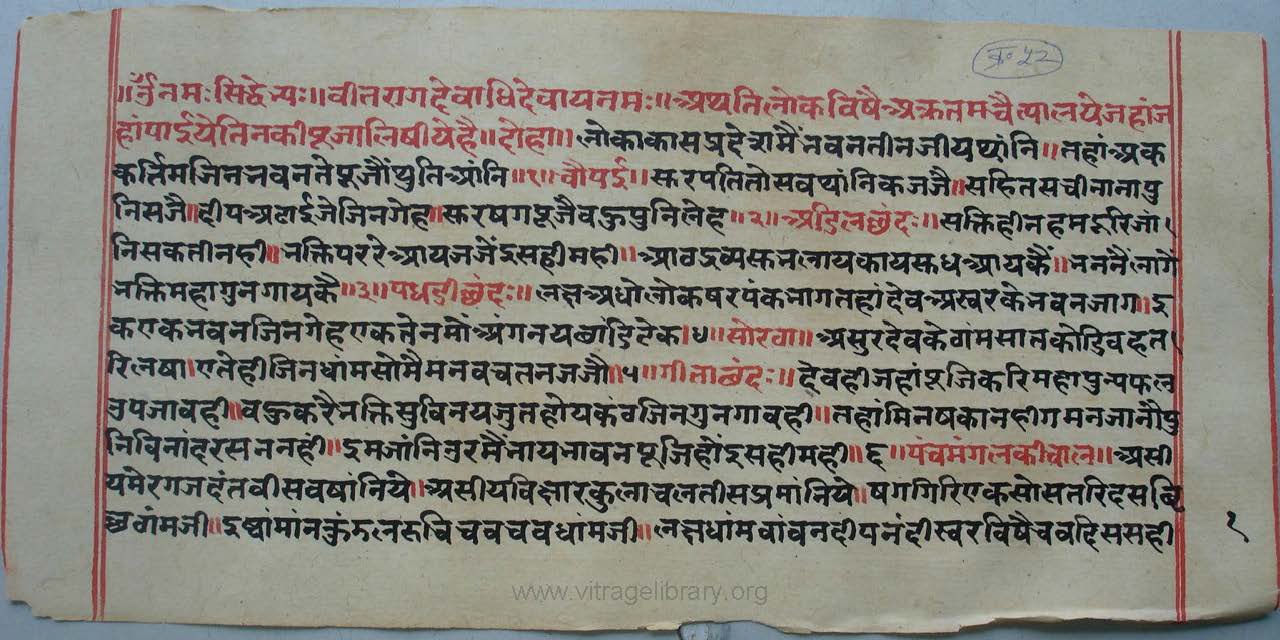 क्र॰ ५२
॥ॐनमःसिद्धेभ्यः॥वीतरागदेवाधिदेवायनमः॥अथतिलोकविषैअक्रतमचैत्यालयेजहांज
हांपाईयेतिनकीपूजालिषीयेहै॥दोहा॥लोकाकासप्रदेशमैंभवनतीनजीयथांनि॥तहांअक
कर्तिमजिनभवनतेपूजौंथुतिआंनि॥१॥चौपई॥सुरपतितोसवथांनिकजजै॥सहितसचीनानापु
निसजै॥दीपअढाईजेजिनगेह॥सुरषगपूजैवऊपुनिलेह॥२॥अडिलछंदः॥सक्तिहीनहमदूरिजा
निसकतीनही॥भक्तिपररेआयजजेंइसहीमही॥आवद्रव्यसुभलायकायसुधआयकैं॥भननैंलागें
भक्तिमहागुनगायकै॥३॥पधडीछंदः॥लक्षअधोलोकषरपंकभागतहांदेवअसुरकेभवनजाग॥इ
कएकभवनजिनगेहएकतेनमोंअंगनयछांडिटेक।४॥सोरठा॥असुरदेवकेठांमसातकोडिवहत
रिलषा।एतेहीजिनधांमसोमैमनवचतनजजौं॥५॥गीताछंदः॥देवहीजहांपूजिकरिमहापुन्यफल
उपजावही॥वऊकरैभक्तिसुविनयजुतहोयकंवजिनगुनगावही॥तहांमिनषकानहीगमनजानौपु
निविनांदरसननही॥इमजांनिउरमैंनायभावनपूजिहोंइसहीमही॥६॥पंचमंगलकीचाल॥असी
यमेरगजदंतवीसवषांनिये॥असीयविक्षारकुलाचलतीसप्रमांनिये॥षगगिरिएकसोसतरिदसव्रि
छठांमजी॥इष्वांमांनकुंरुलरूचिचवचवधांमजी॥लक्षधांमवांवनदीपनंदीस्वरविषैचवदिससही
१
www.vitragelibrary.org